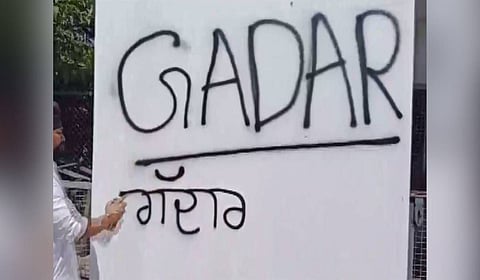 GADAR
ਗੱਦਾਰ